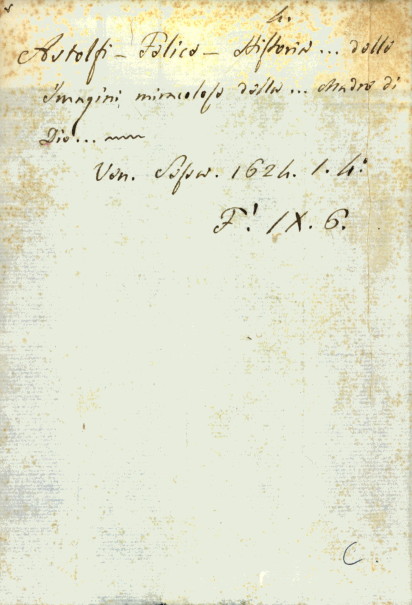 4.
Astolfi - Felice - Historia... delle
Imagini miracolose della... Madre di
Dio...
Ven. Sessa. 1624. 1. 4:
F! IX. 6.
C.